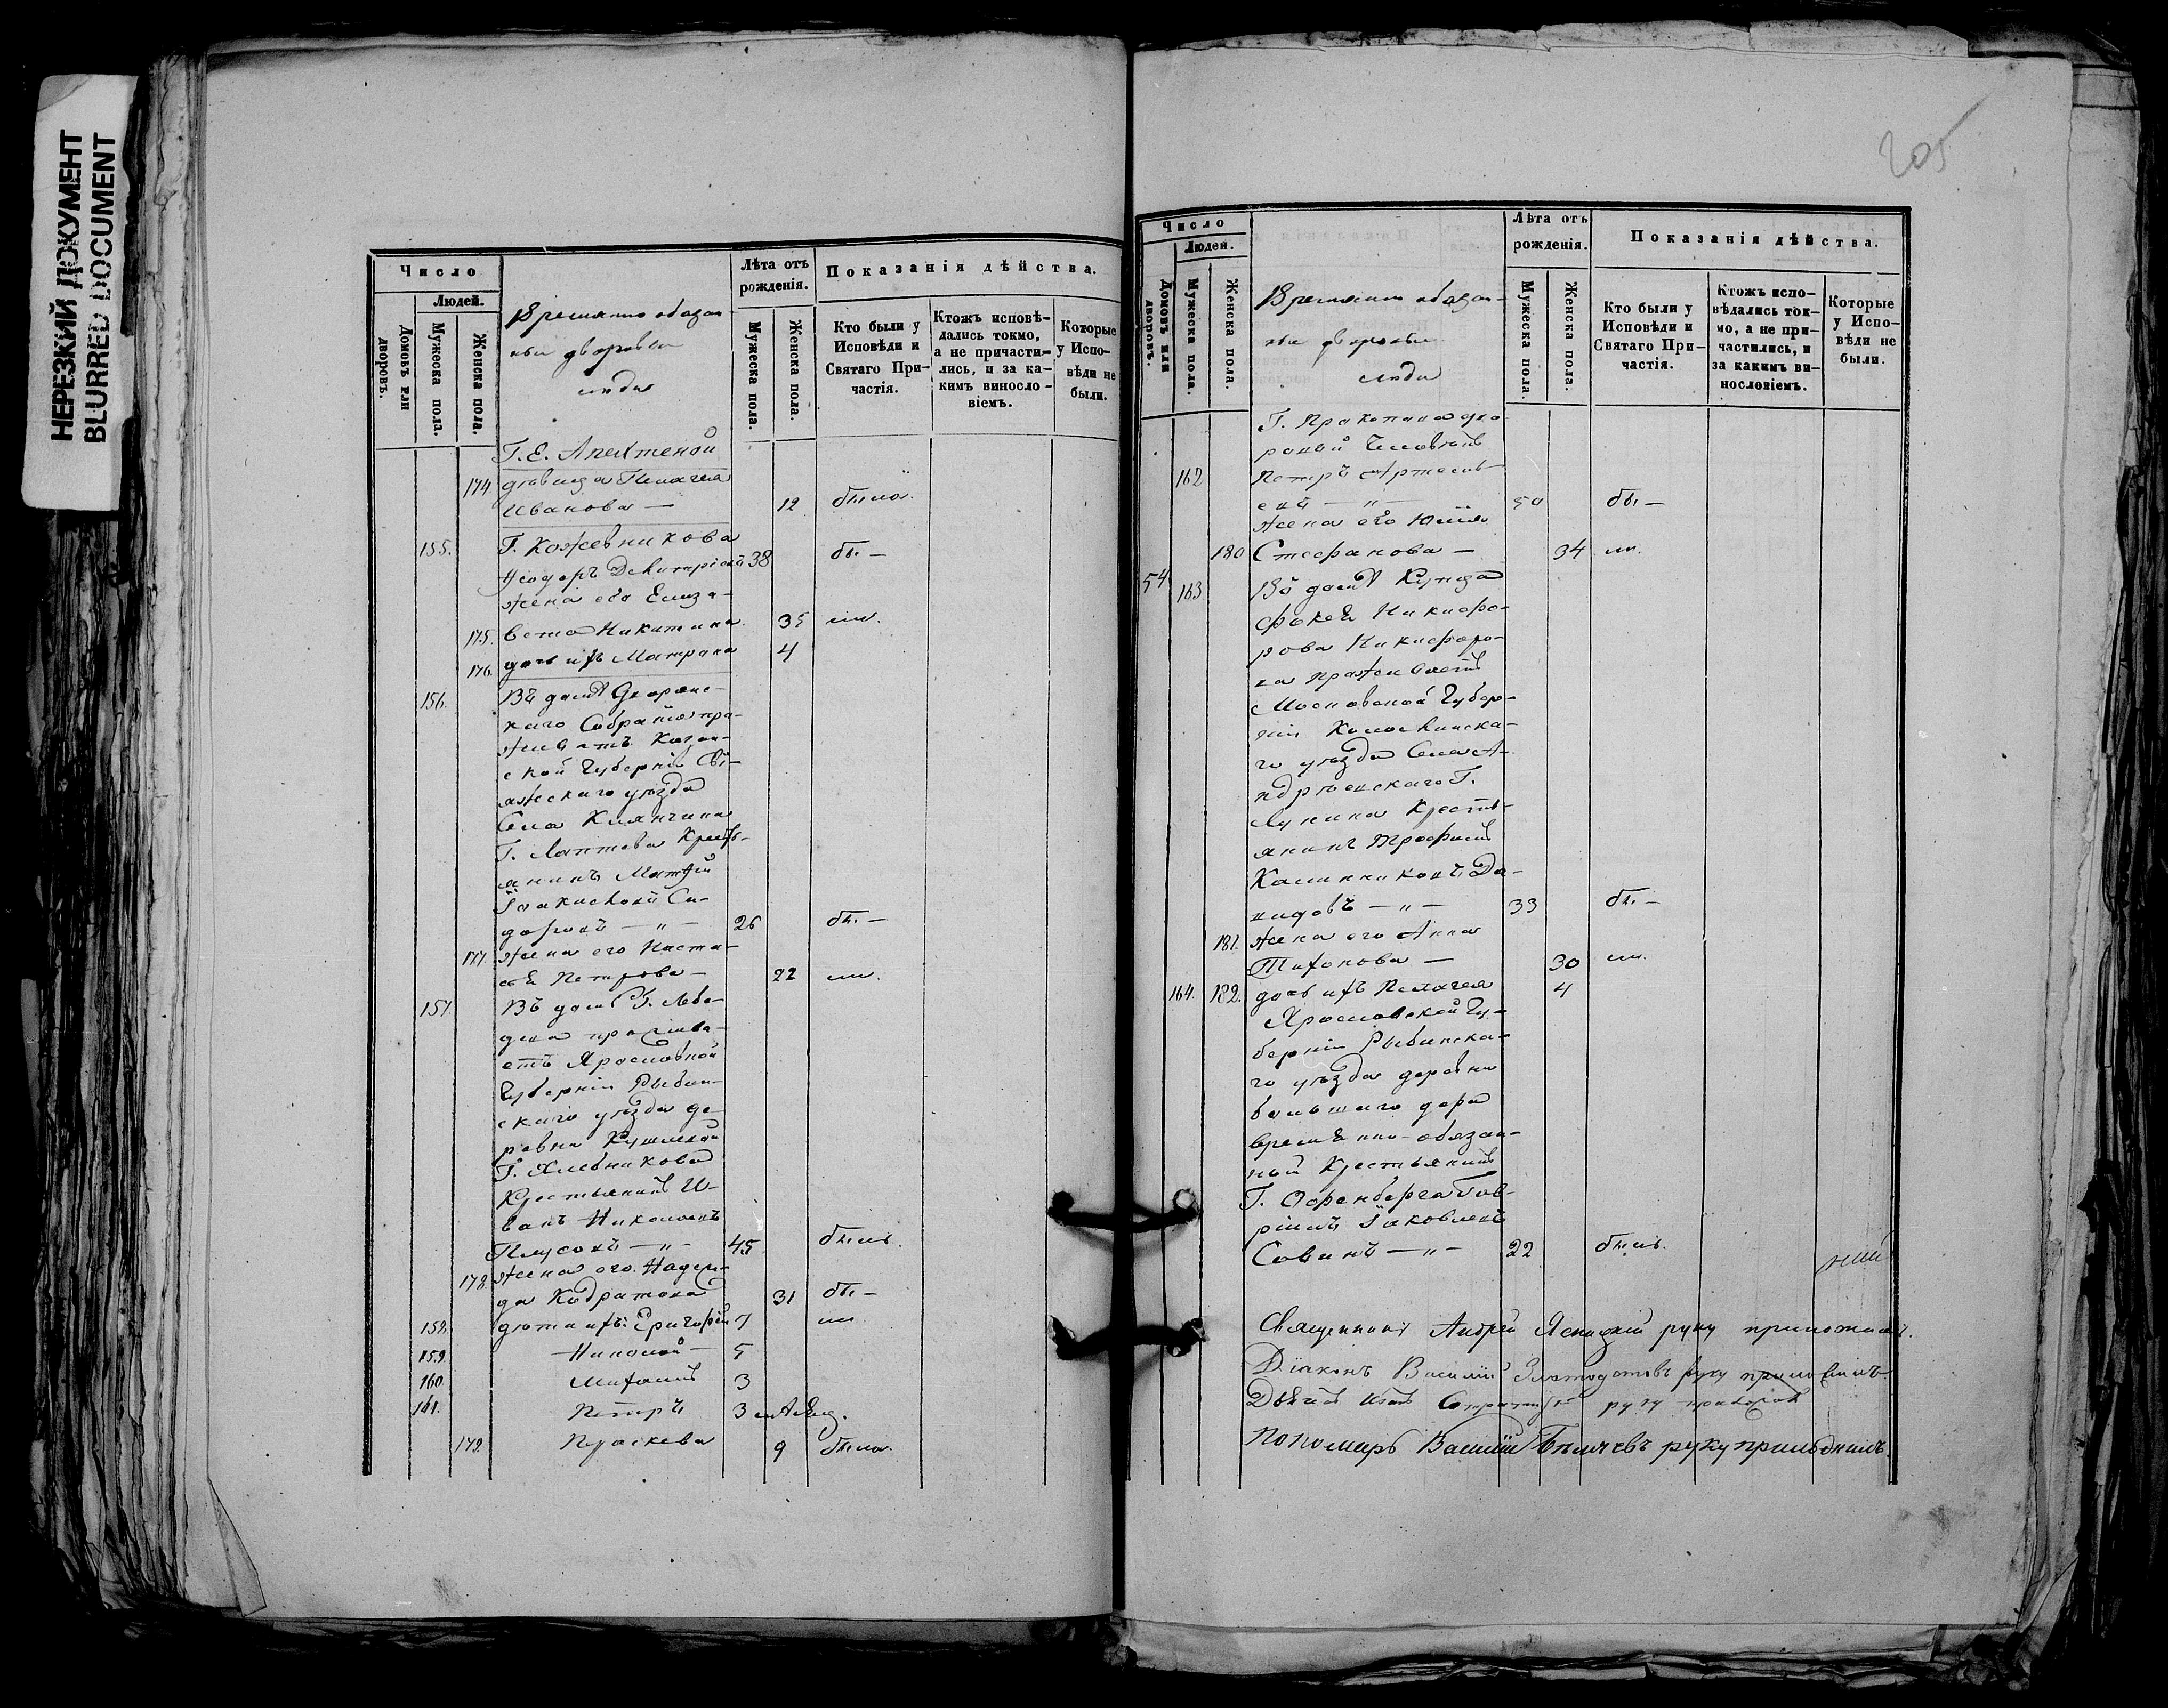 НЕРЕЗКИЙ ДОКУМЕНТ
BLURRED DOCUMENT
205
Число
Людей.
Домовъ или дворовъ.
Мужеска пола.
Женска пола.
Временно обязан
ные дворовые
люди
Лѣта отъ рожденія.
Мужеска пола.
Женска пола.
Показанія дѣйства.
Кто были у Исповѣди и Святаго Причастія.
Ктожъ исповѣдались токмо, а не причастились, и за какимъ винословіемъ.
Которые у Исповѣди не были.
Г. Е. Апыхтеной
174. дѣвица Пелагея
Иванова — 12 была.
155. Г. Кожевникова
Ѳеодоръ Димитріевъ 38 бы —
жена его Елиза-
175. вета Никитина 35 ла.
176. дочь ихъ Матрона 4
156. Въ домѣ Дворянс-
каго Собранія про-
живаетъ Казан-
ской Губерніи Сві-
яжскаго уѣзда
Села Клянчина
Г. Лаптева Кресть-
янинъ Матѳей
Си-
доровъ — " — 26 бы. —
177. жена его Наста-
сья Петрова — 22 ла.
157. Въ домѣ Г. Лебе-
дева прожива-
етъ Ярославской
Губерніи Рыбин-
скаго уѣзда де-
ревни
Г. Хлебникова
Крестьянинъ И-
ванъ Николаевъ
— " — 45 былъ.
178. жена его Надеж-
да Кодратова 31 бы —
158. дѣти ихъ: Григорій 7 ли
159. Николай — 5
160. Михаилъ 3
161. Петръ 3
179. Праскева 9 была.
Число
Людей.
Домовъ или дворовъ.
Мужеска пола.
Женска пола.
Временно обязан-
ные дворовые
люди
Лѣта отъ рожденія.
Мужеска пола.
Женска пола.
Показанія дѣйства.
Кто были у Исповѣди и Святаго Причастія.
Ктожъ исповѣдались токмо, а не причастились, и за какимъ винословіемъ.
Которые у Исповѣди не были.
Г. Прокопина дво-
ровой Человѣкъ
162 Петръ Артемь-
евъ — " — 50 бы —
жена его Юлія
180 Стефанова — 34 ли.
54 163 Въ домѣ Купца
Никифо-
рова Никифоро-
ва проживаетъ
Московской Губер-
ніи Коломенска-
го уѣзда Села А-
ндреевскаго Г.
Лунина Кресть-
янинъ Трофимъ
Калинниковъ Да-
видовъ — " — 33 бы. —
181. жена его Анна
Тихонова — 30 ли.
164. 182. дочь ихъ Пелагея 4
Ярославской Гу-
берніи Рыбинска-
го уѣзда деревни
большаго двора
временно-обязан-
ный Крестьянинъ
Г. Офенберга Гав-
ріилъ Іаковлевъ
Совинъ — " — 22 былъ.
Священникъ Андрей Ясницкій руку приложилъ.
Діаконъ Василій Златоустовъ руку приложилъ.
Дьячекъ руку приложилъ
Пономарь Василій Бѣляевъ руку приложилъ.